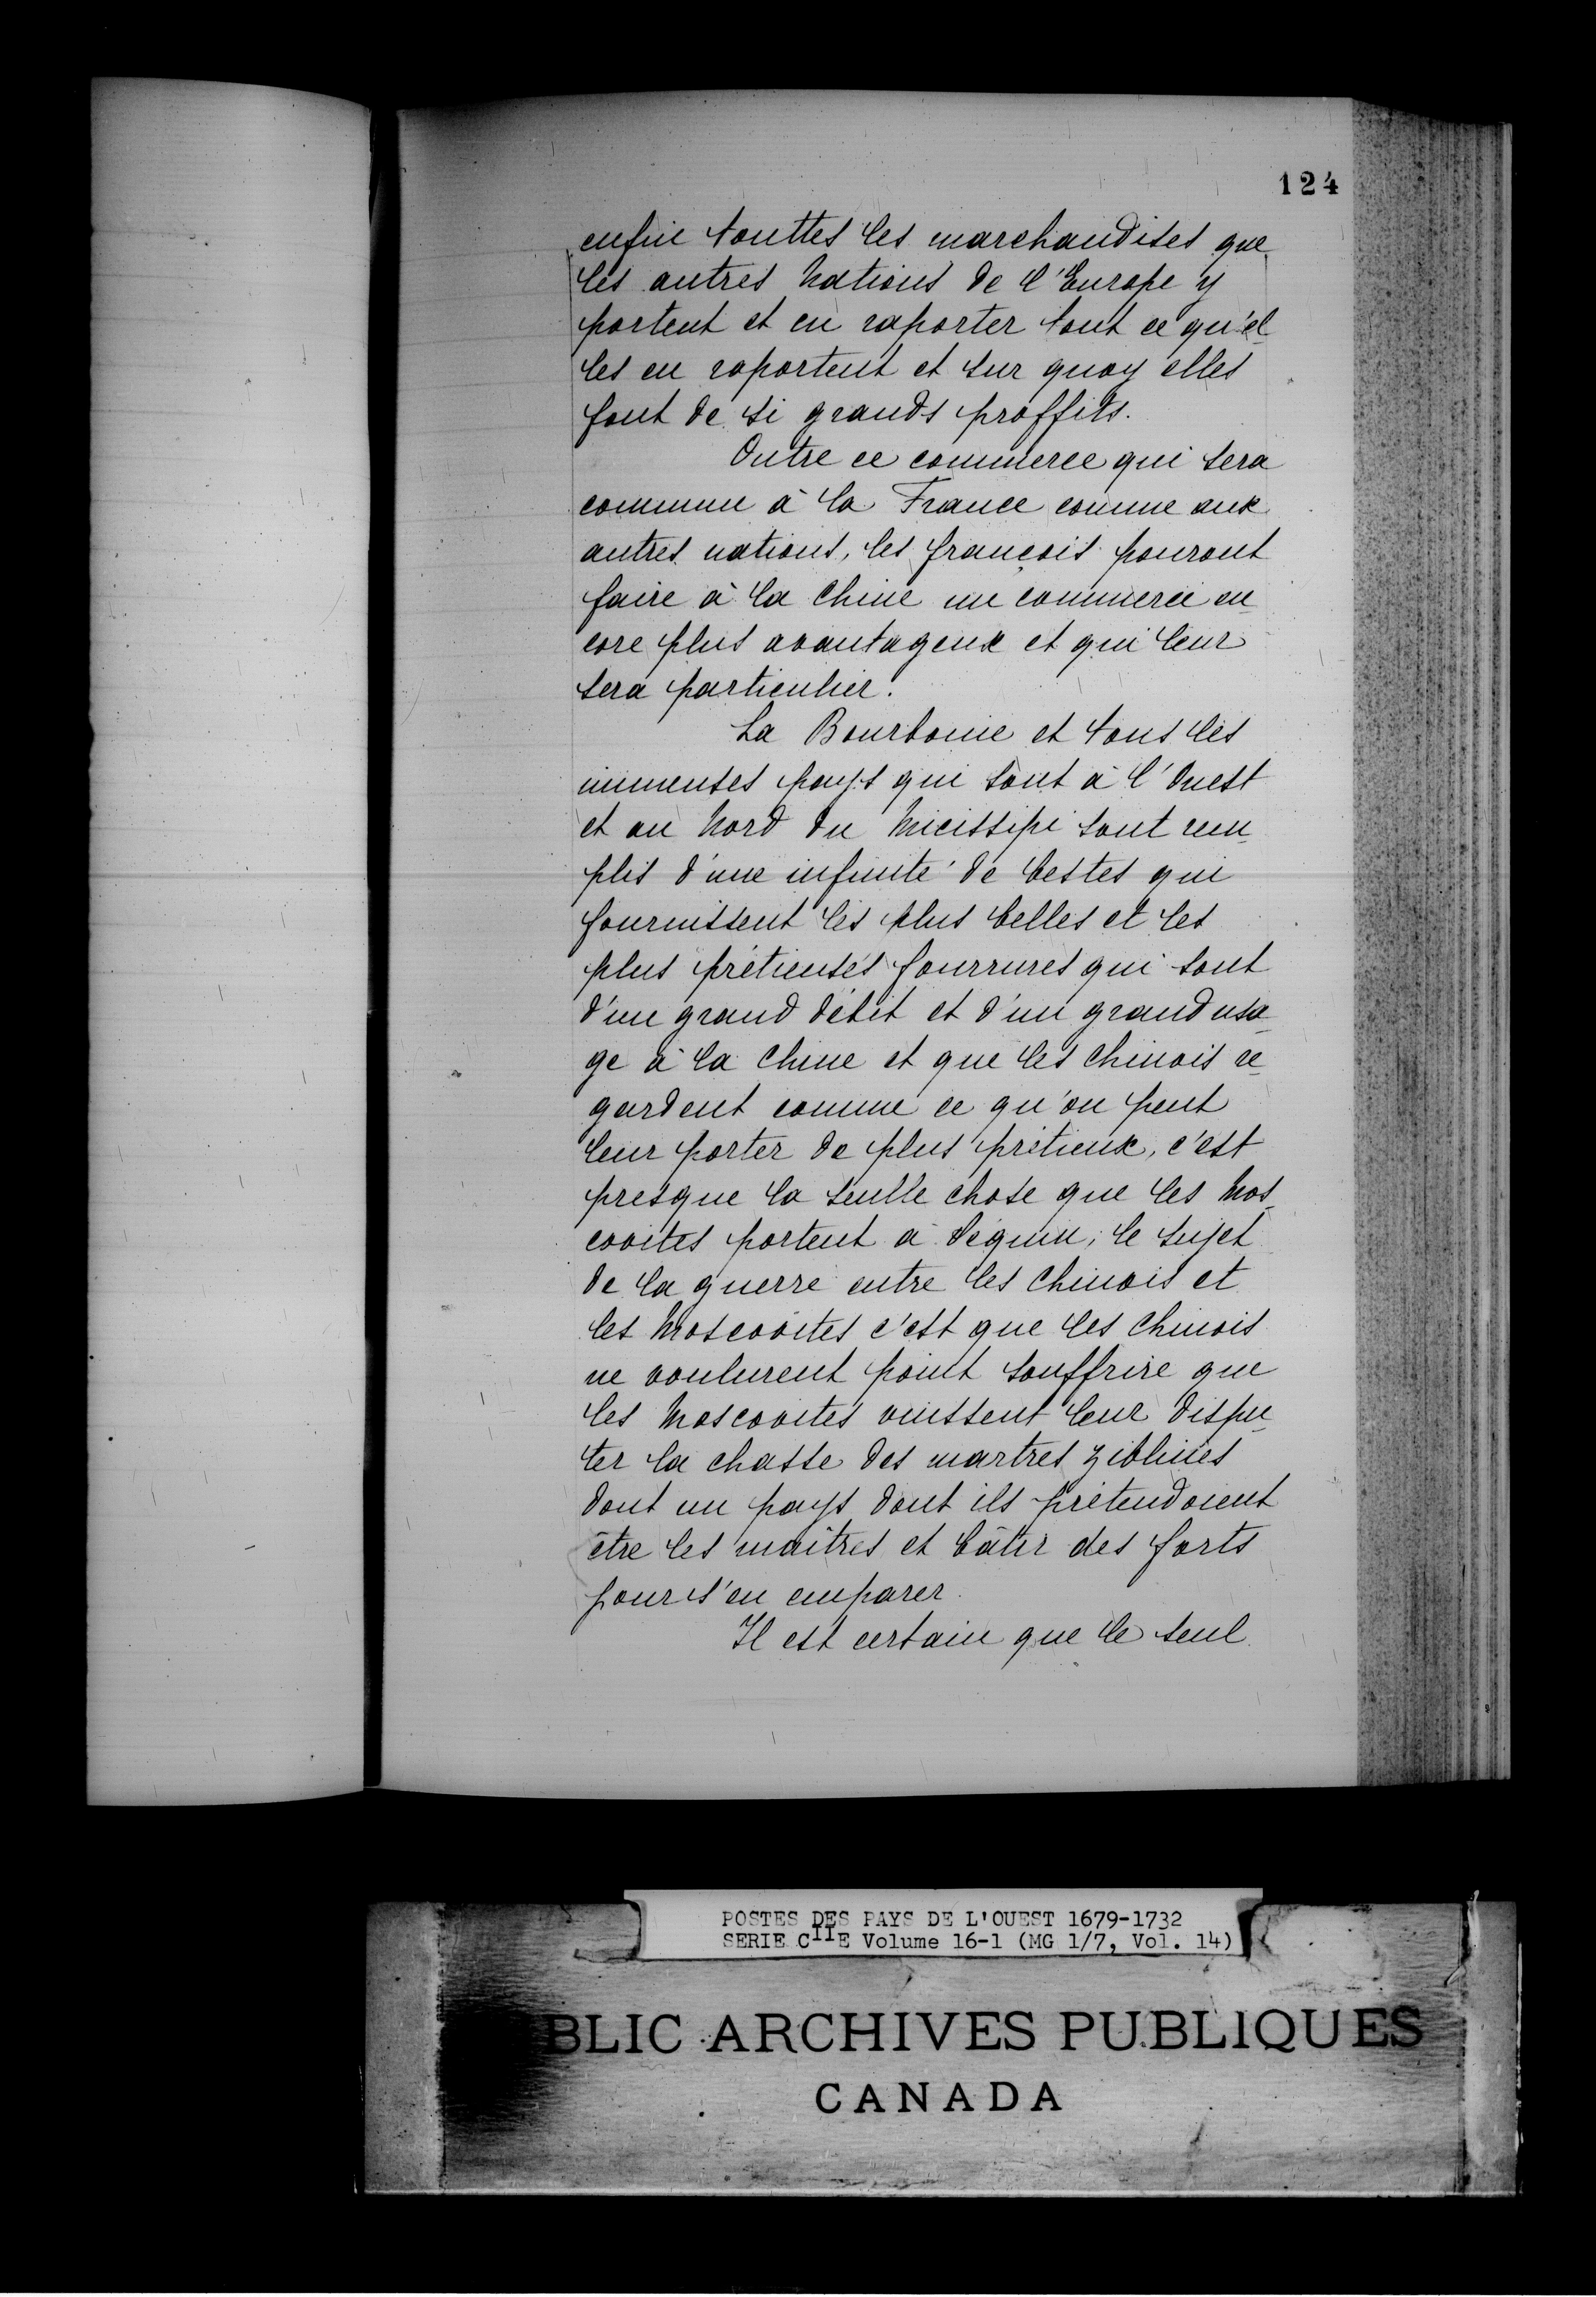 124
enfin touttes les marchandises que
les autres Nations de l'Europe y
portent et en raporter tout ce qu'el
les en raportent et sur quoy elles
font de si grands proffits.
Outre ce commerce qui sera
commun à la France comme aux
autres nations, les françois pouront
faire à la Chine un commerce en
core plus avantageux et qui leur
sera particulier.
La Bourbonie et tous les
immenses pays qui sont à l'Ouest
et au Nord du Micissipi sont rem
plis d'une infinité de bestes qui
fournissent les plus belles et les
plus prétieuses fourrures qui sont
d'un grand débit et d'un grand usa
ge à la Chine et que les Chinois re
gardent comme ce qu'on peut
leur porter de plus prétieux, c'est
presque la seulle chose que les Mos
covites portent à Péquin, le sujet
de la guerre entre les Chinois et
les Moscovites c'est que les Chinois
ne voulurent point souffrire que
les Moscovites vinssent leur dispu
ter la chasse des martres ziblines
dont un pays dont ils prétendoient
être les maîtres et bâtir des forts
pour s'en emparer.
Il est certain que le seul
POSTES DES PAYS DE L'OUEST 1679-1732
SERIE CIIE Volume 16-1 (MG 1/7, Vol. 14)
BLIC ARCHIVES PUBLIQUES
CANADA